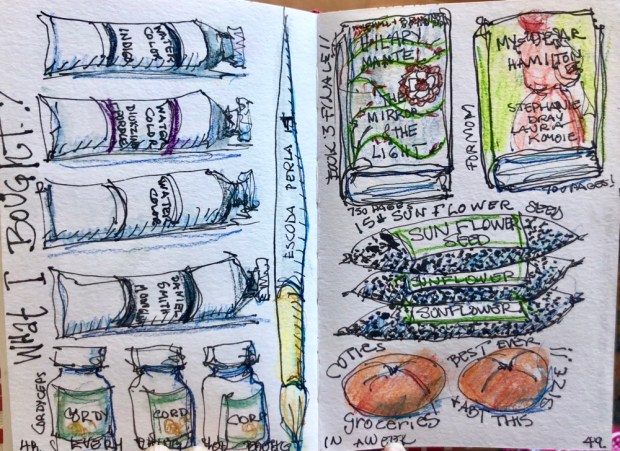 What I BOUGHT!
WATER
COLOR
INDIGO
WATER
COLOR
WATER
COLOR
DANIEL
SMITH
CORDYCEPS
CORDY
CORD
CORD
48. EVERY THING YOU BOUGHT
ESCODA PERLA
BOOK 3 FINALE!!
HILARY
MANTEL
THE
MIRROR
& THE
LIGHT
750 PAGES
FOR MOM
MY DEAR
HAMILTON
STEPHANIE
DRAY
LAURA
KAMOIE
700 PAGES!
15# SUNFLOWER SEED
SUNFLOWER
SEED
SUNFLOWER
SUNFLOWER
CUTIES
BEST EVER
groceries
THIS
IN A WEEK
49.